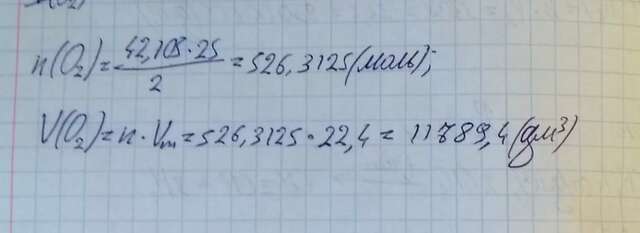 n(O₂)=42,105·25/2=526,3125(моль);
V(O₂)=n·Vm=526,3125·22,4=11789,4(дм³)